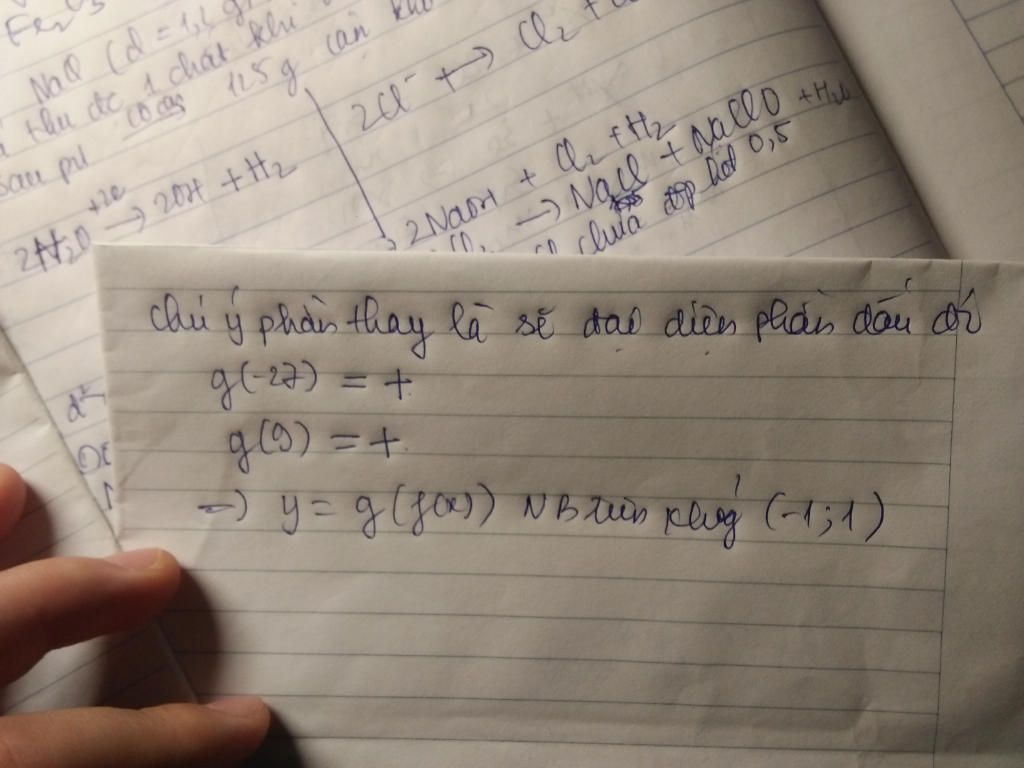 NaCl (d = 1,2 g
thu đc 1 chất khí
sau pư có cas 125 g cần
2H₂O +2e → 2OH + H₂
2Cl⁻ → Cl₂ +
+ Cl₂ + H₂
2NaOH
→ NaCl + NaClO + H₂O
chứa hết 0,5
chú ý phần thay là sẽ đại diện phần dấu đó
g(-27) = +
g(9) = +
→ y = g(f(x)) NB trên khoảng (-1; 1)